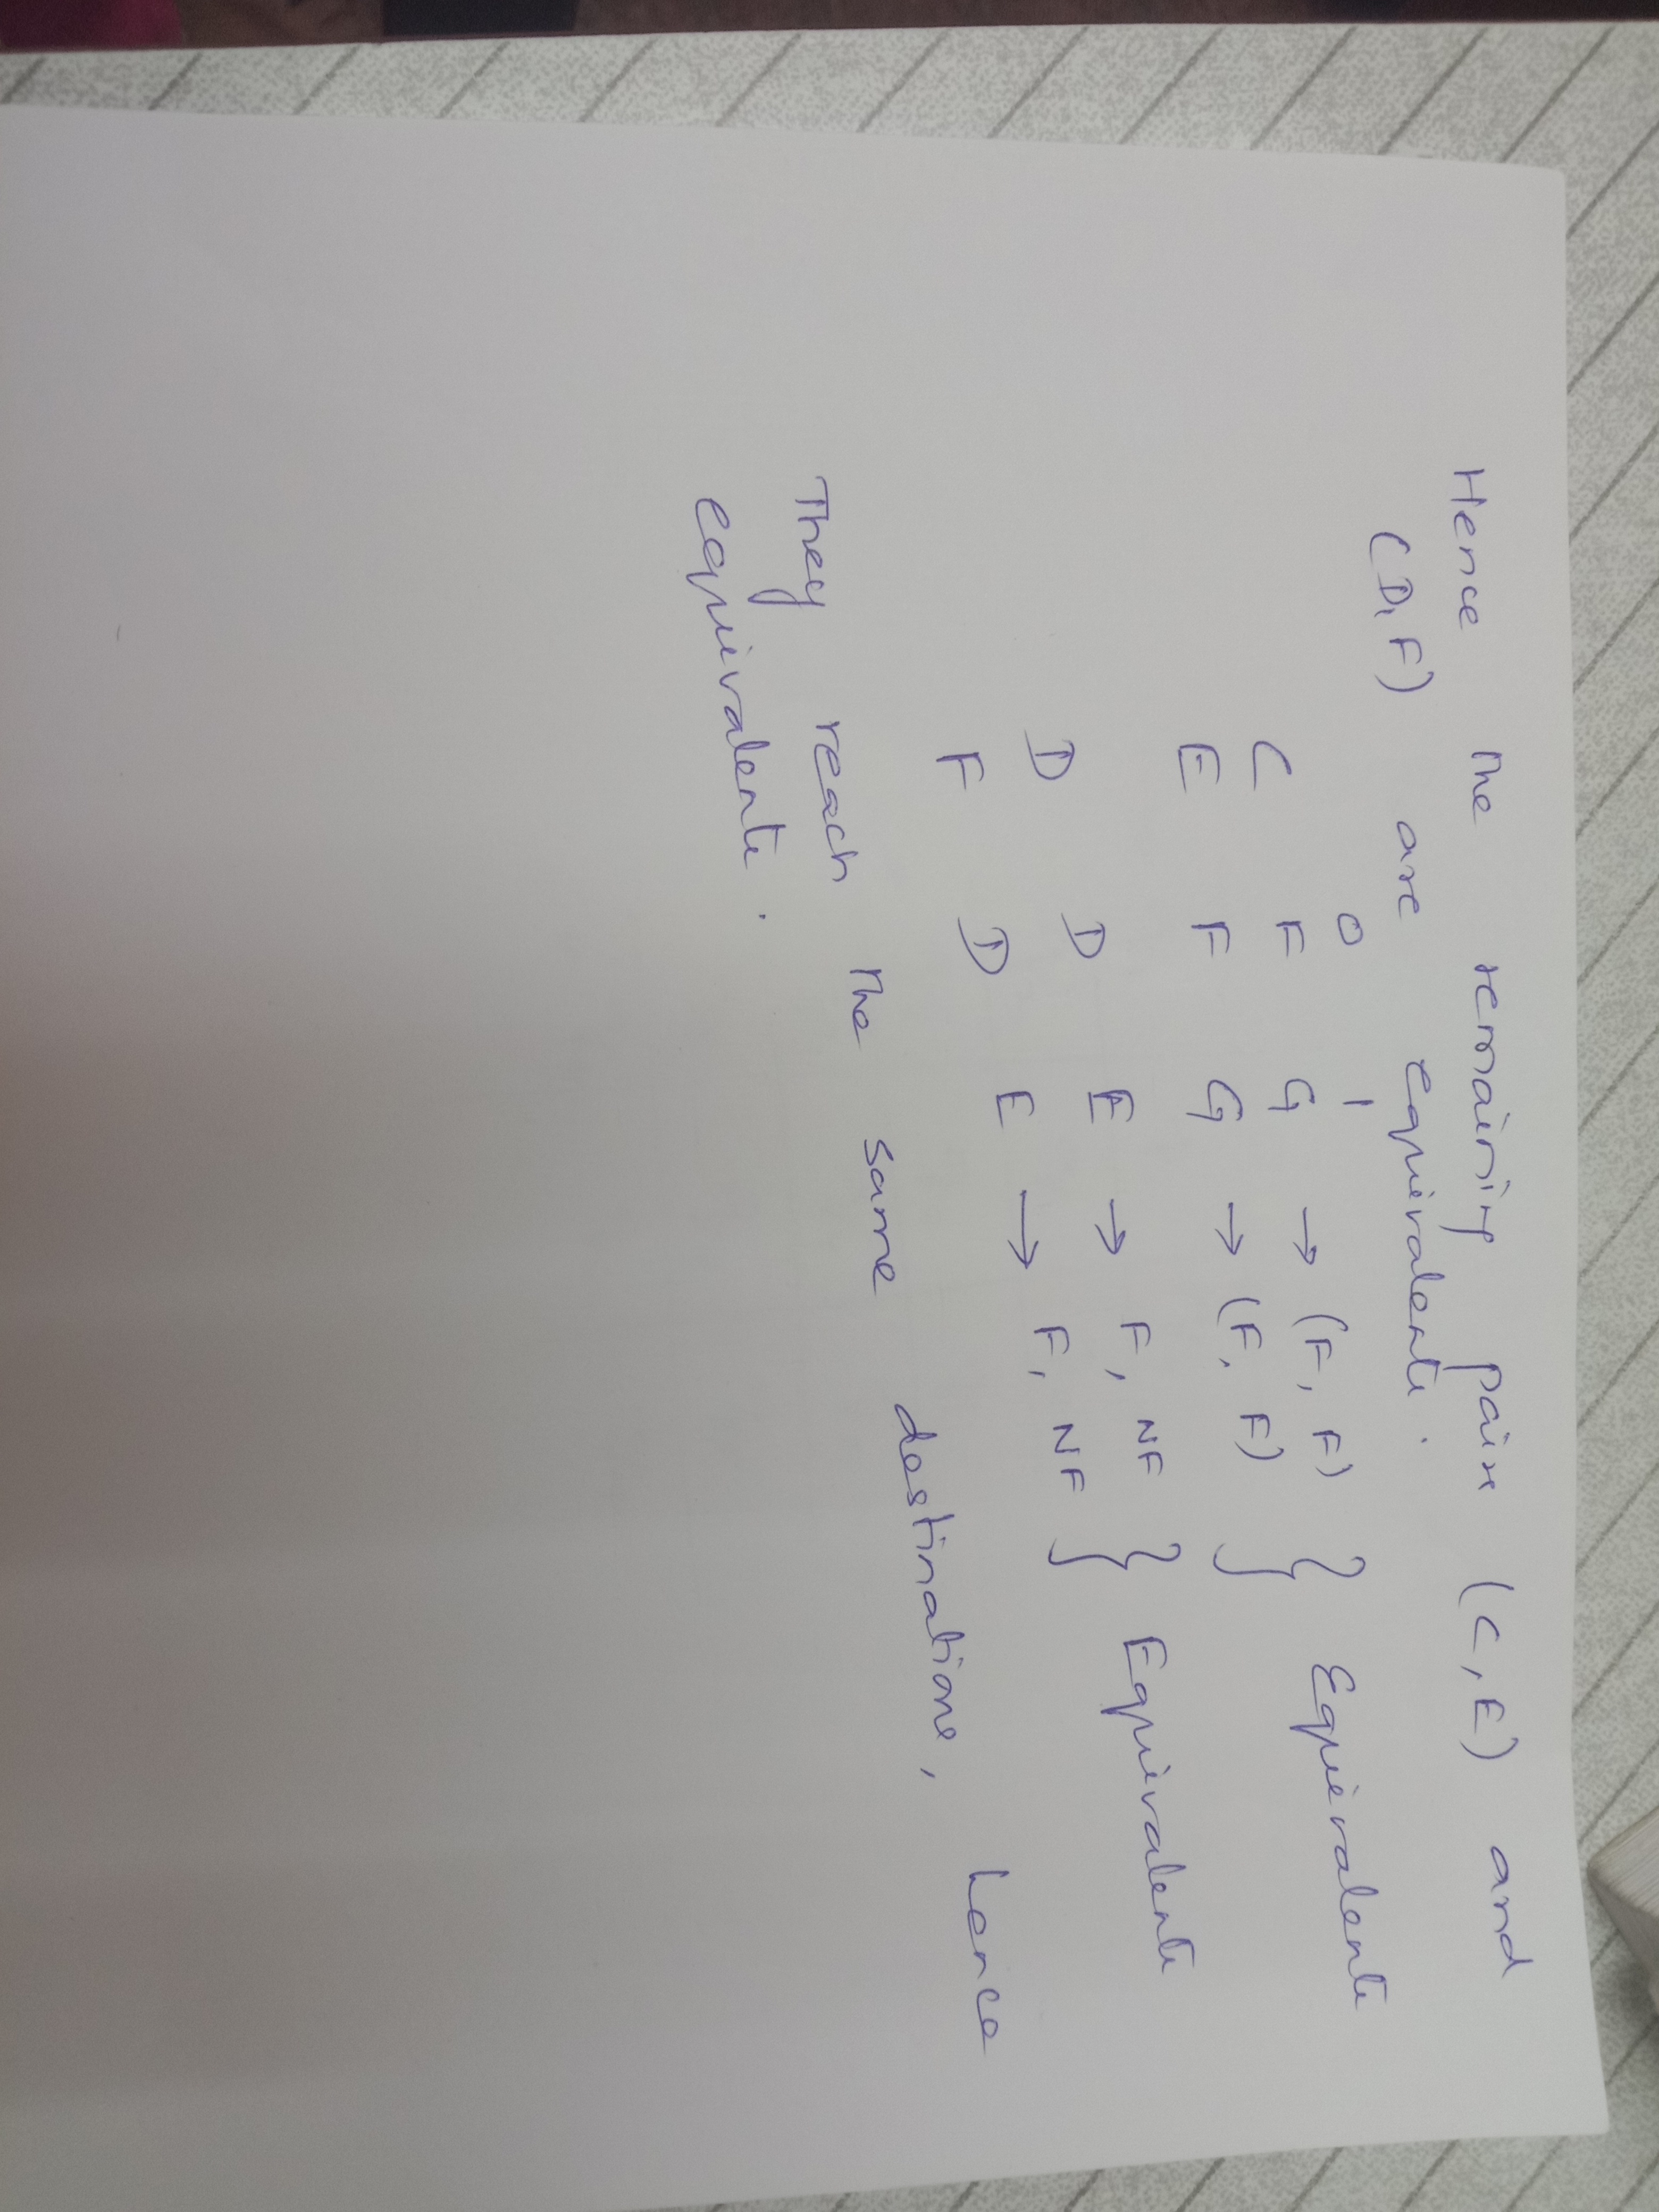 Hence the remaining pair (C, E) and
(D, F) are equivalent.
0 1
C F G → (F, F) } Equivalent
E F G → (F, F)
D D E → F, NF } Equivalent
F D E → F, NF
They reach the same destinations, hence
equivalent.